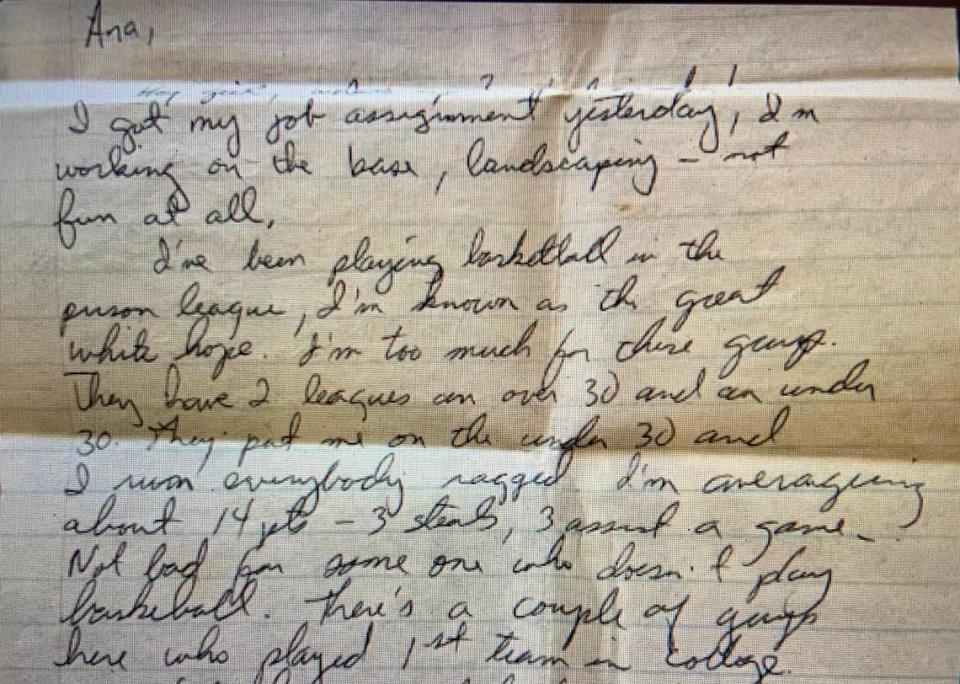 Ana,
I got my job assignment yesterday, I'm
working on the base, landscaping - not
fun at all,
I've been playing basketball in the
prison league, I'm known as the great
white hope. I'm too much for these guys.
They have 2 leagues an over 30 and an under
30. They put me on the under 30 and
I run everybody ragged. I'm averaging
about 14 pts - 3 steals, 3 assist a game.
Not bad for some one who doesn't play
basketball. There's a couple of guys
here who played 1st team in college.